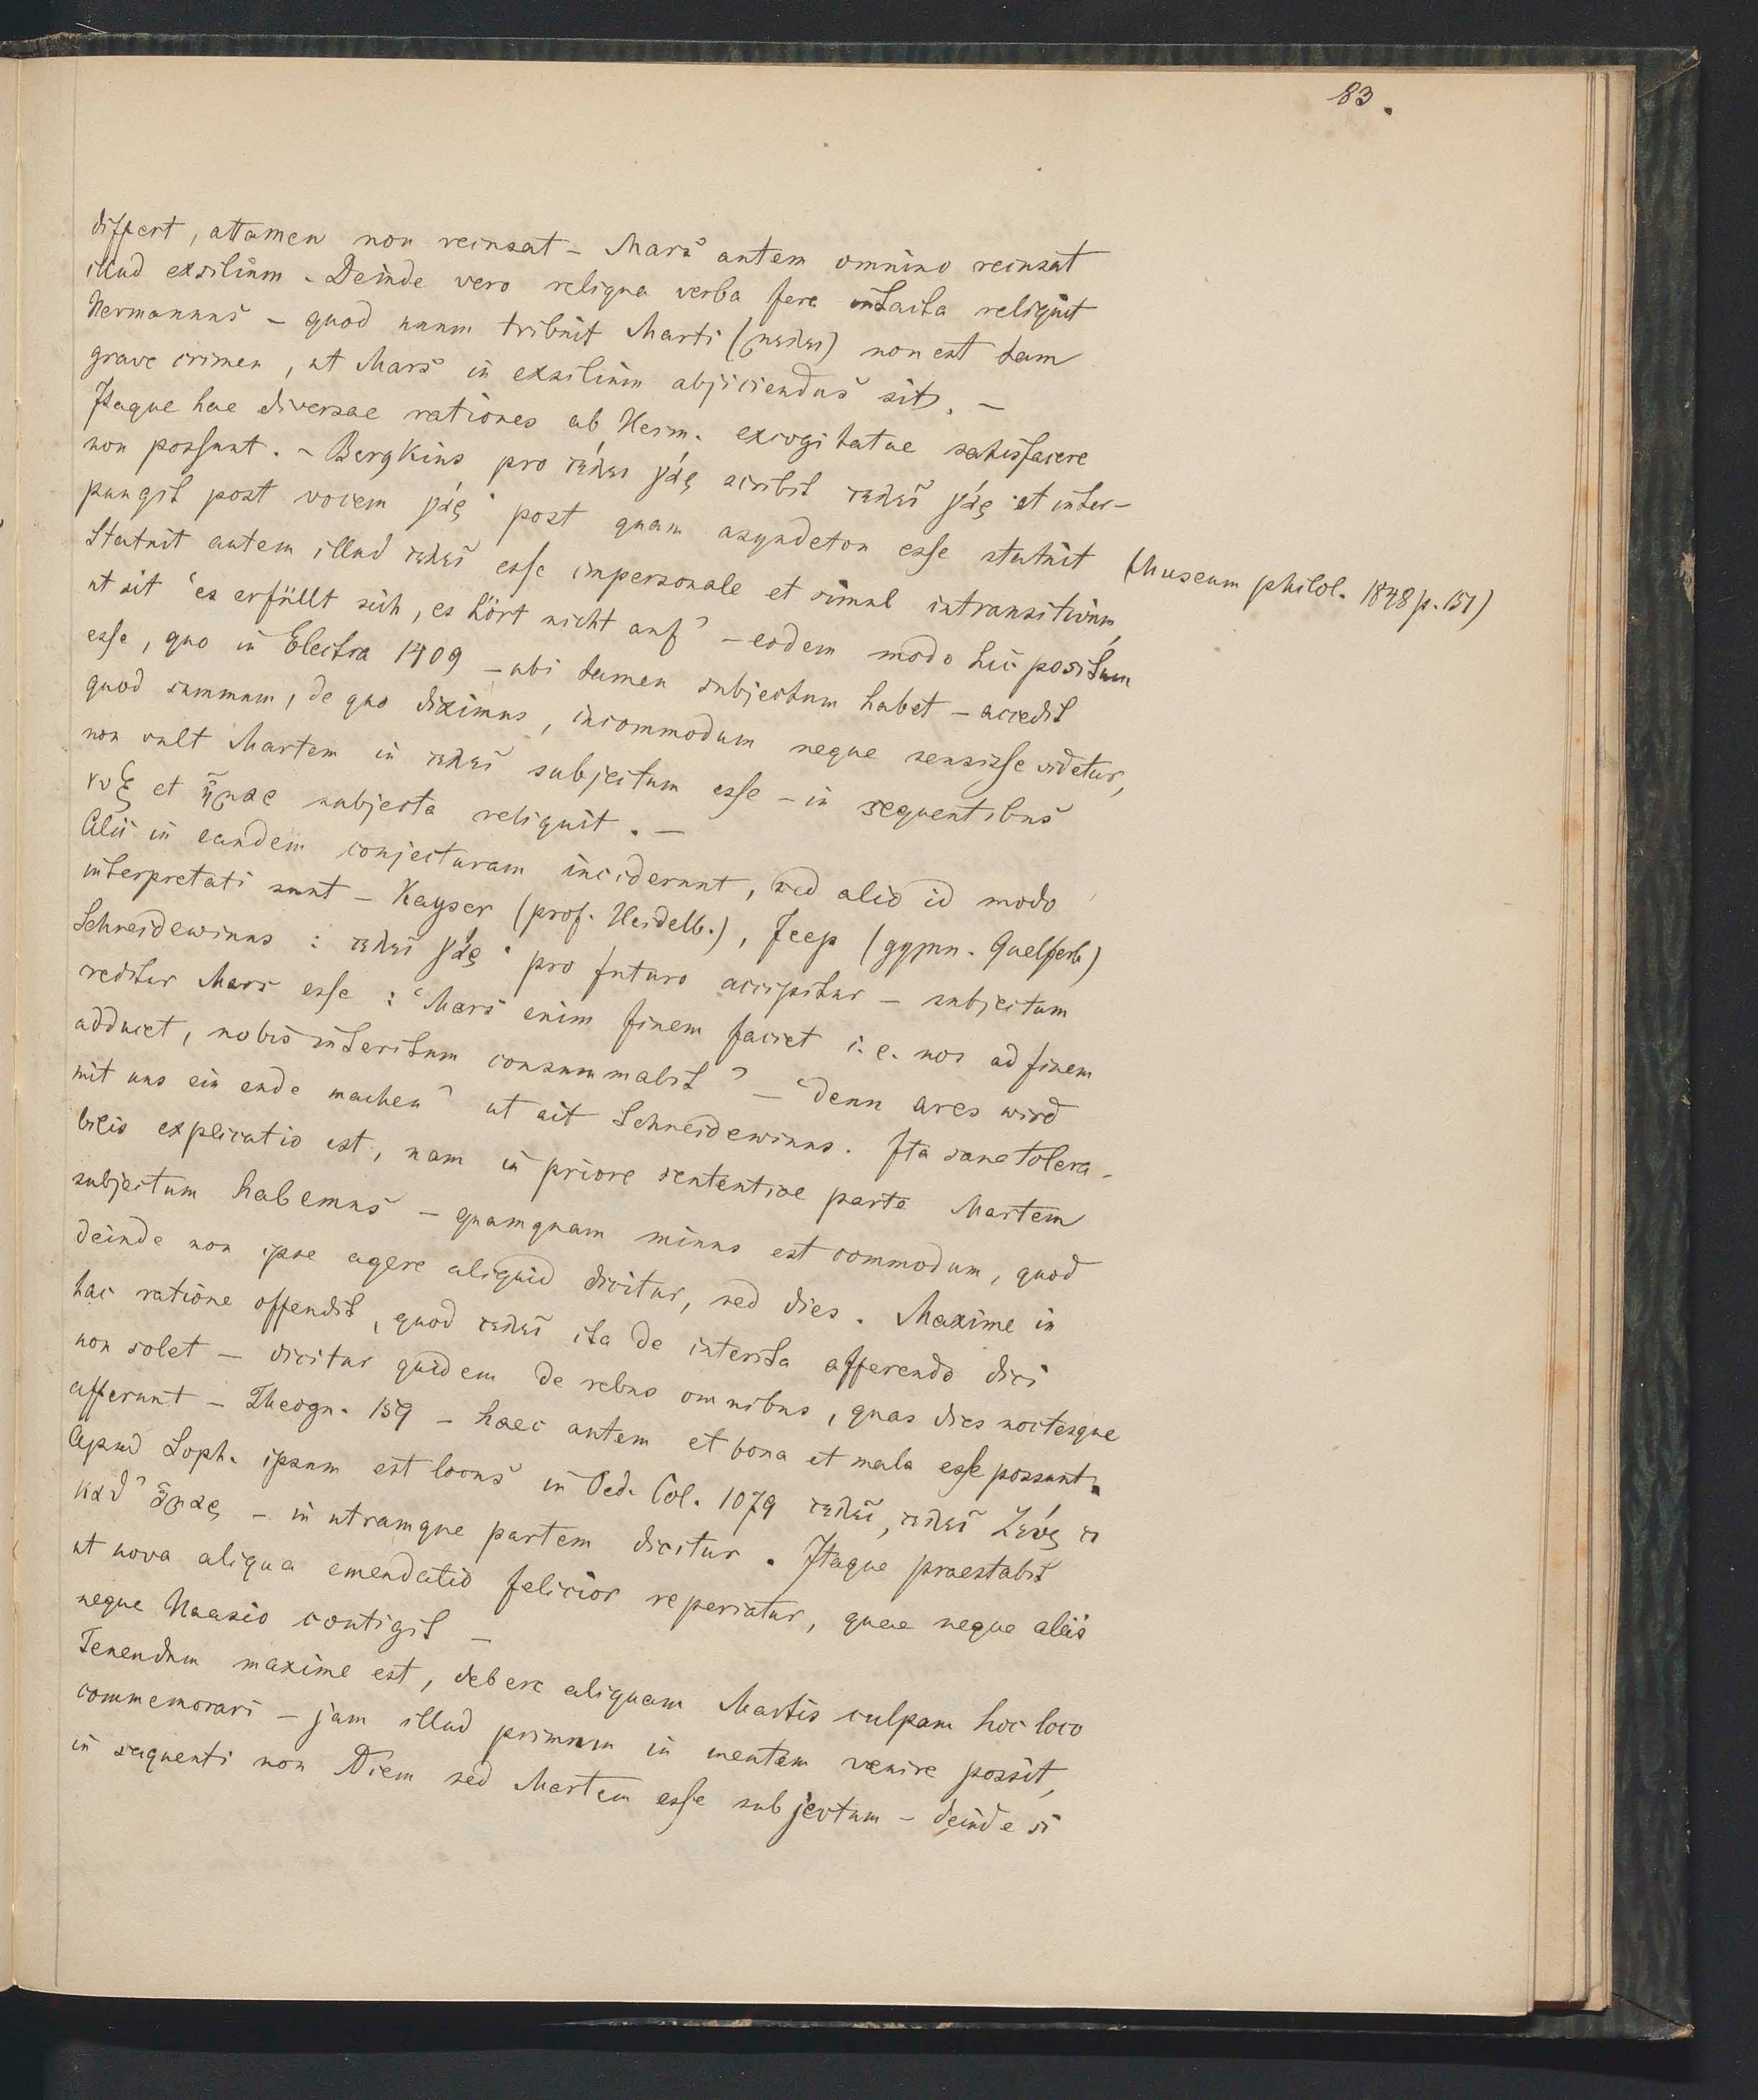 83.
differt, attamen non recusat – Mars autem omnino recusat
illud exsilium – Deinde vero reliqua verba fere intacta reliquit
Hermannus – quod unum tribuit Marti (μελει) non est tam
grave crimen, ut Mars in exsilium abjiciendus sit. –
Itaque hae diversae rationes ab Herm. excogitatae satisfacere
non possunt. – Bergkius pro τέλει γάρ scribit τελεῖ γάρ et inter-
pungit post vocem γάρ· post quam asyndeton esse statuit (Museum philol. 1848 p. 151)
Statuit autem illud τελεῖ esse impersonale et simul intransitivum,
ut sit 'es erfüllt sich, es hört nicht auf' – eodem modo hic positum
esse, quo in Electra 1409 – ubi tamen subjectum habet – accedit
quod summum, de quo diximus, incommodum neque sensisse videtur,
non vult Martem in τελεῖ subjectum esse – in sequentibus
νυξ et ἦμαρ subjecta reliquit. –
Alii in eandem conjecturam inciderunt, sed alio id modo
interpretati sunt – Kayser (prof. Heidelb.), Jeep (gymn. Guelferb)
Schneidewinus : τελεῖ γάρ· pro futuro accipitur – subjectum
reditur Mars esse : 'Mars enim finem faciet i. e. nos ad finem
adducet, nobis interitum consummabit' – 'denn ares wird
mit uns ein ende machen' ut ait Schneidewinus. Ita sane tolera-
bilis explicatio est, nam in priore sententiae parte Martem
subjectum habemus – quamquam minus est commodum, quod
deinde non ipse agere aliquid dicitur, sed dies. Maxime in
hac ratione offendit, quod τελεῖ ita de interitu afferendo dici
non solet – dicitur quidem de rebus omnibus, quas dies noctesque
afferunt – Theogn. 159 – haec autem et bona et mala esse possunt.
Apud Soph. ipsum est locus in Oed. Col. 1079 τελεῖ, τελεῖ Ζεύς τι
κατ' ἆμαρ – in utramque partem dicitur. Itaque praestabit
ut nova aliqua emendatio felicior reperiatur, quae neque aliis
neque Haasio contigit –
Tenendum maxime est, debere aliquam Martis culpam hoc loco
commemorari – jam illud primum in mentem venire possit,
in sequenti non Diem sed Martem esse subjectum – deinde si